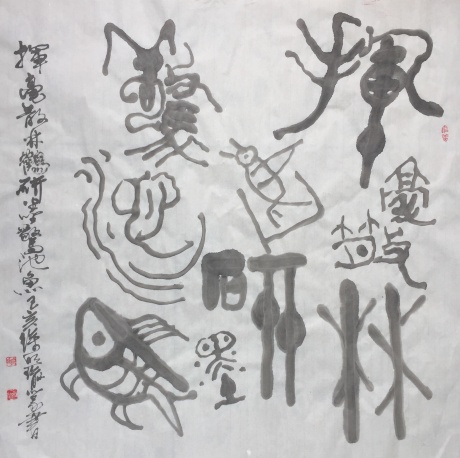 揮毫散林
鶴研墨
驚池魚
揮毫散林鶴研墨驚池魚